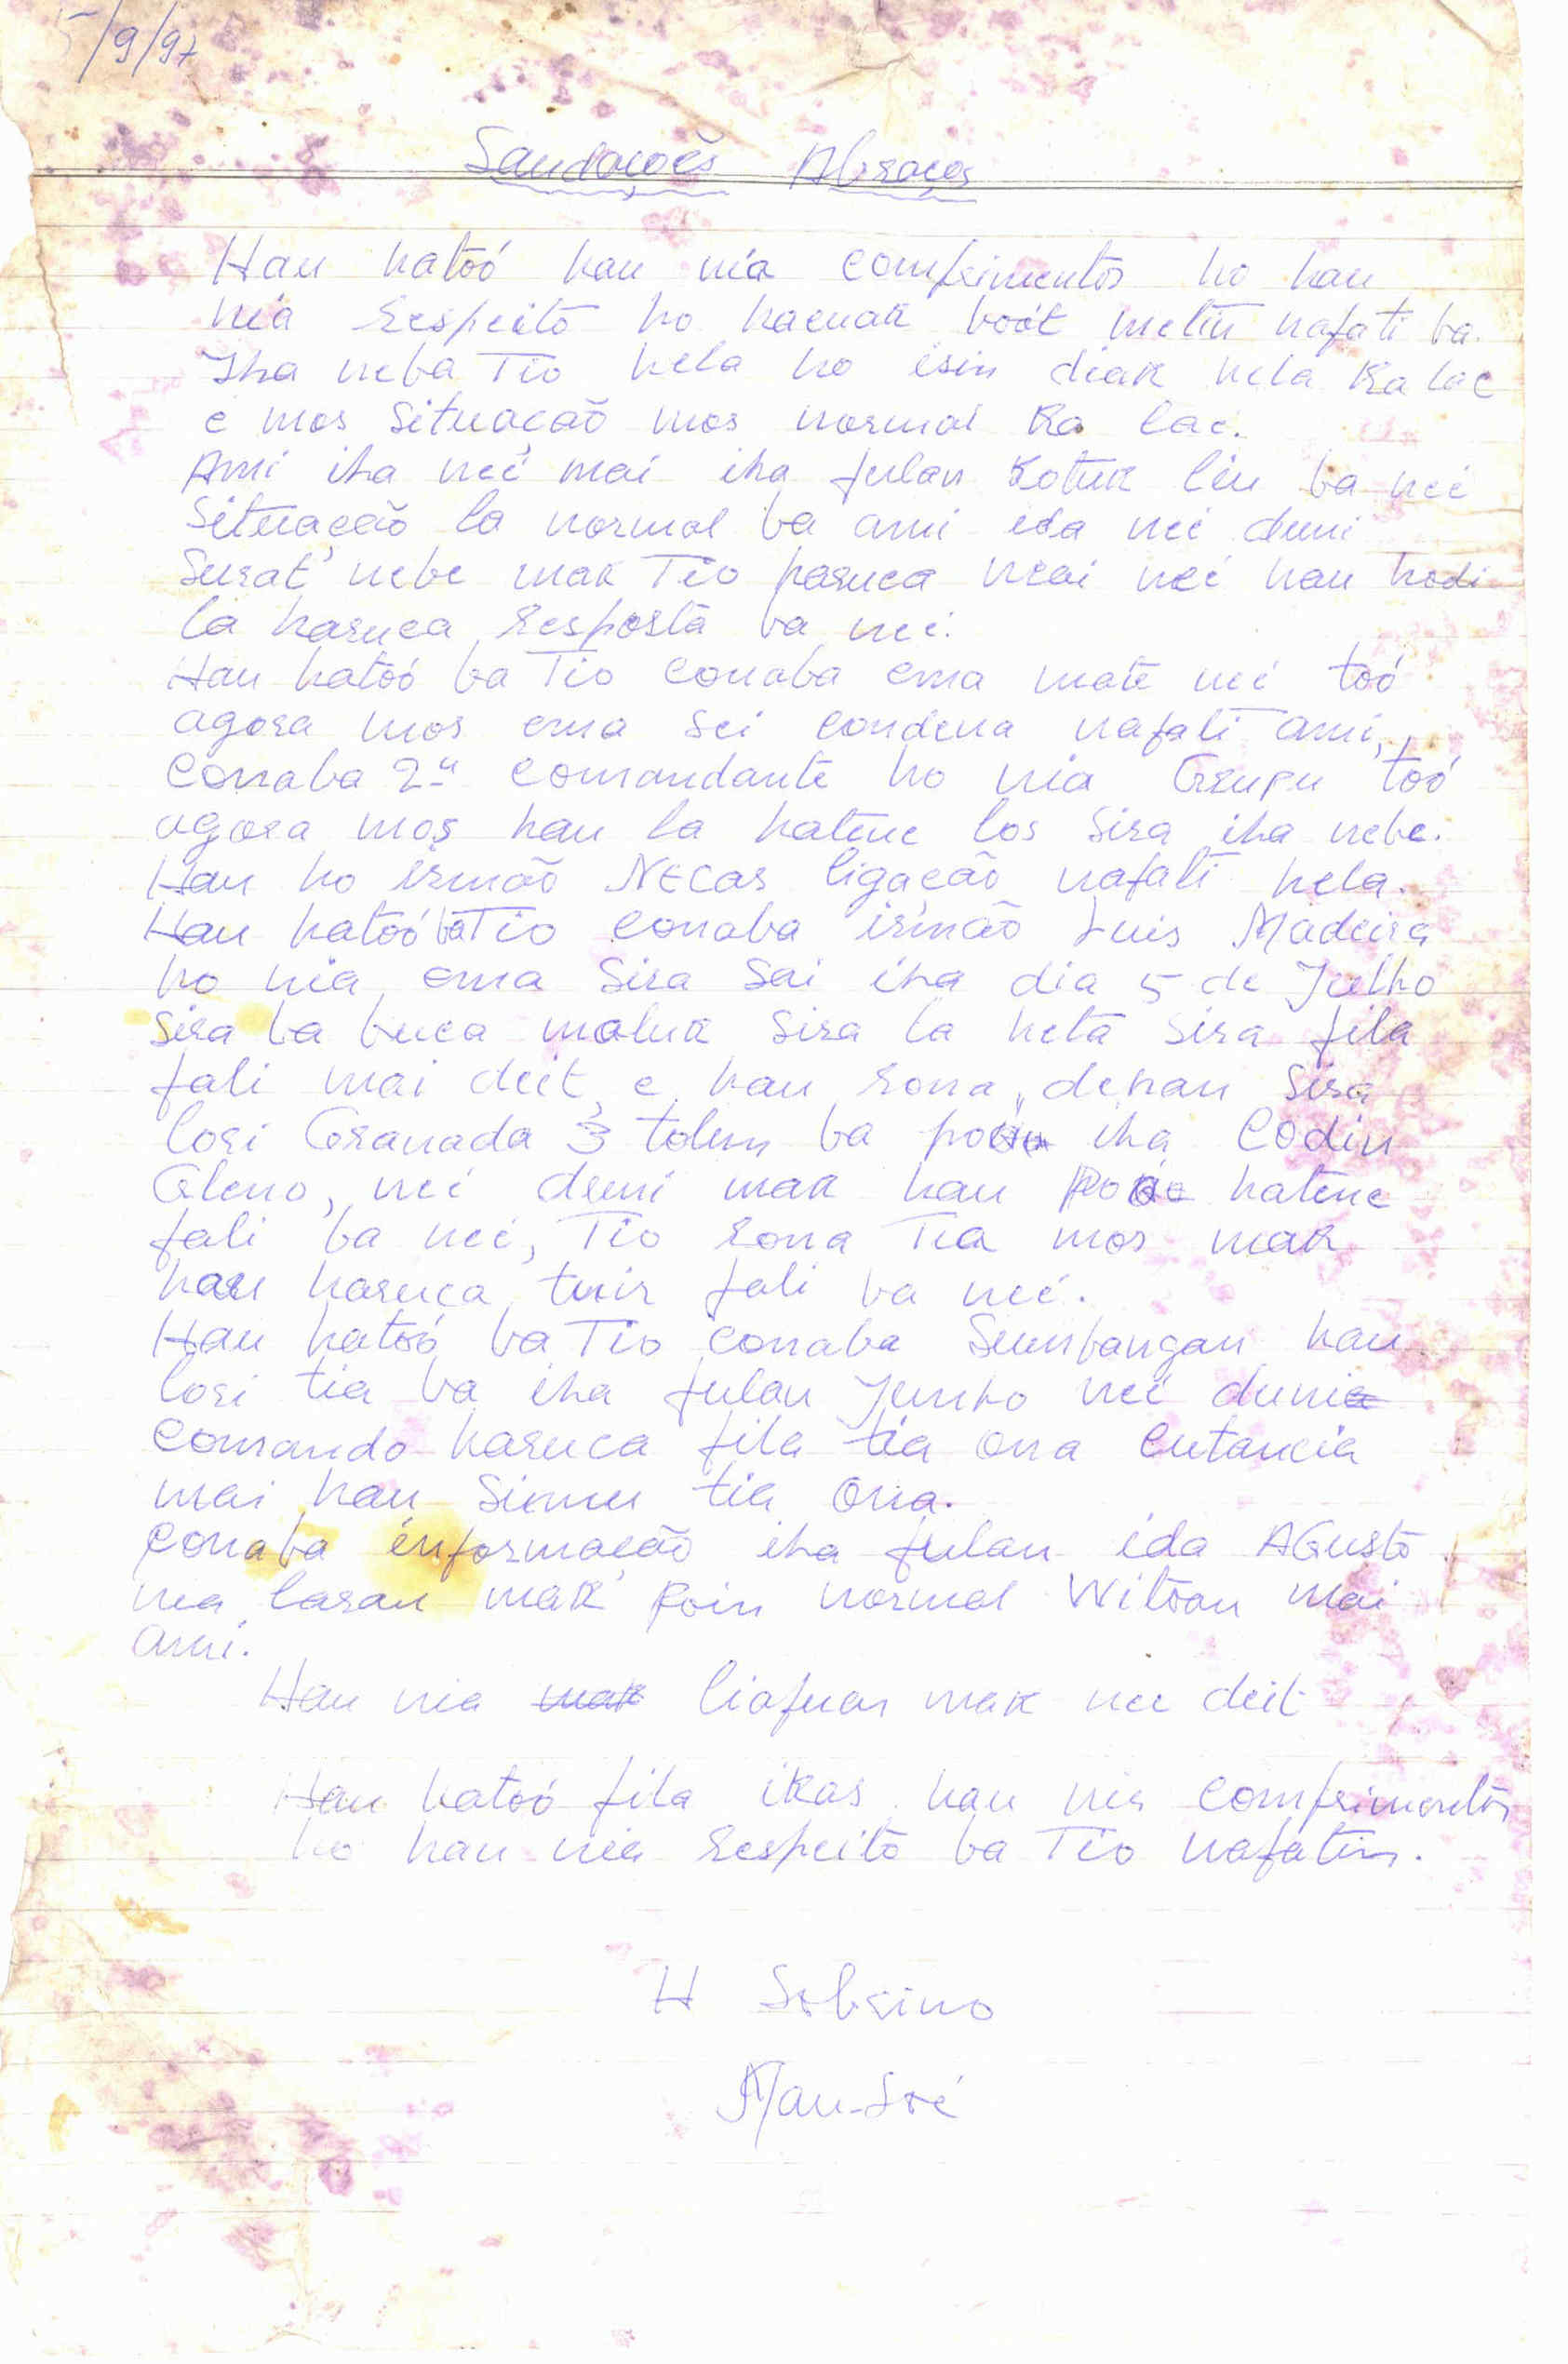 5/9/97
Saudações Abraços
Hau hatóó hau nia comprimentos ho hau
nia respeito ho hacuak boót metin nafati ba.
Iha neba Tio hela ho isin diak hela Ka lae
e mos Situação mos normal Ka lae.
Ami iha neé mai iha fulan Kotuk liu ba neé
Situação la normal ba ami ida neé duni
Surat nebe mak Tio haruca mai neé hau hodi
la haruca resposta ba neé.
Hau hatóó ba Tio conaba ema mate neé toó
agora mos ema sei condena nafati ami,
Conaba 2º Comandante ho nia Grupu toó
agora mos hau la hatene los Sira iha nebe.
Hau ho irmão NECas ligação nafati hela.
Hau hatóó ba Tio Conaba irmão Luis Madeira
ho nia ema Sira Sai iha dia 5 de Julho
Sira ba buca maluk Sira la heta Sira fila
fali mai deit, e hau rona dehan Sira
lori Granada 3 tolun ba iha Codin
Gleno, neé duni mak hau hatene
fali ba neé, Tio rona Tia mos mak
hau haruca tuir fali ba neé.
Hau hatóó ba Tio Conaba Sumbangan hau
lori tia ba iha fulan Junho neé duni
Comando haruca fila tia ona cutancia
mai hau Simu tia Ona.
Conaba informação iha fulan ida AGusto
nia laran mak foin normal Witoan mai
ami.
Hau nia mak liafuan mak nee deit
Hau hatóó fila ikas hau nia Comprimentos
ho hau nia respeito ba Tio nafatin.
H Sobrino
Mau-Soé